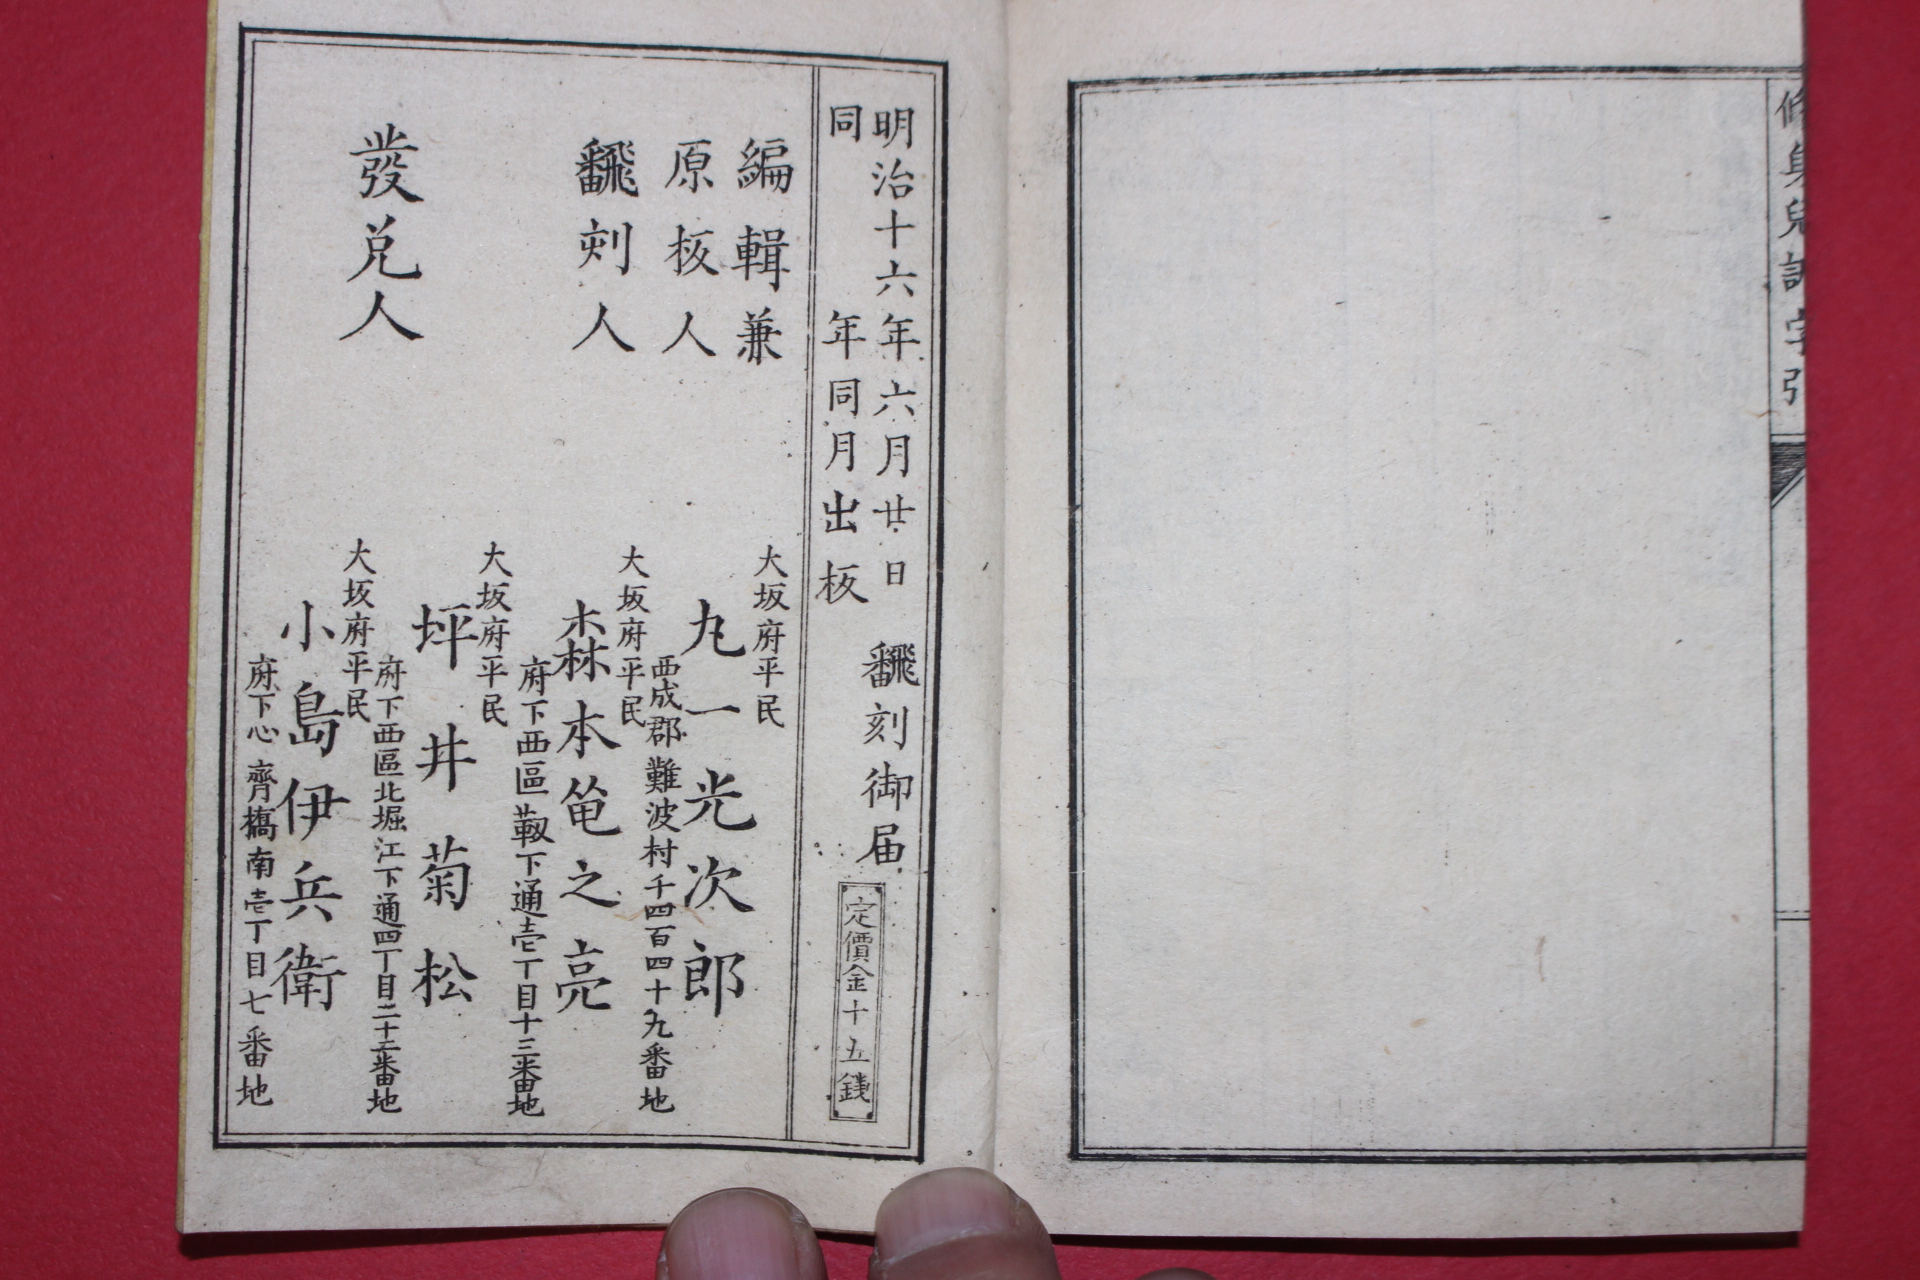 修身兒訓字引
明治十六年六月廿日 飜刻御届
同 年同月出板
定價金十五錢
編輯兼
原板人
大坂府平民
九一光次郎
西成郡難波村千四百四十九番地
飜刻人
大坂府平民
森本篭之亮
府下西區靱下通壱丁目十三番地
大坂府平民
坪井菊松
府下西區北堀江下通四丁目二十二番地
發兌人
大坂府平民
小島伊兵衛
府下心齊橋南壱丁目七番地